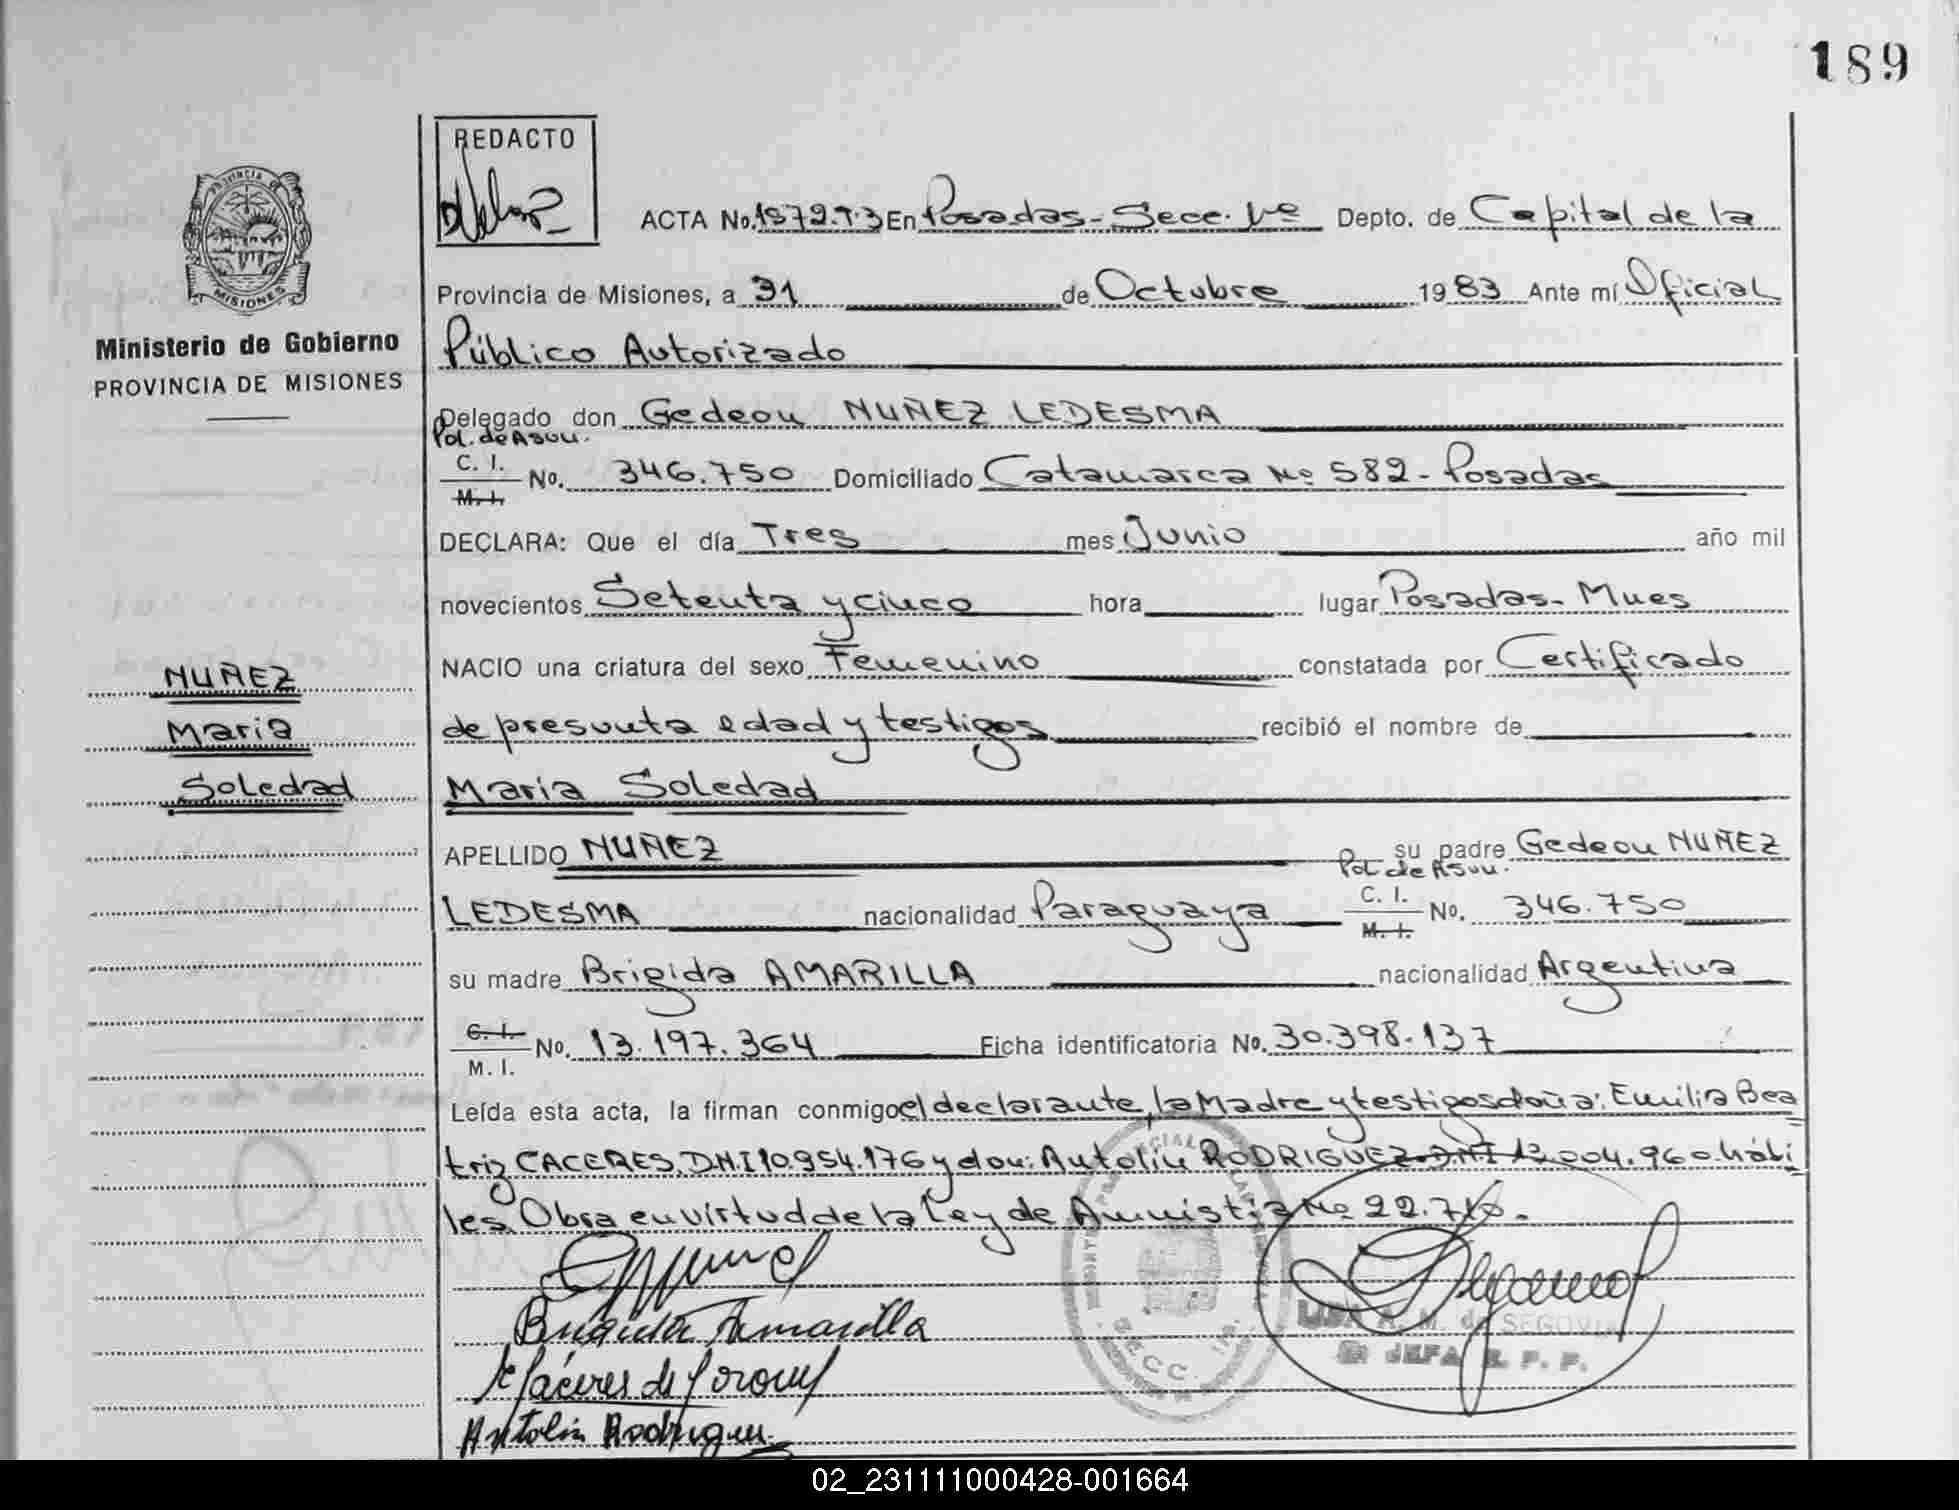 189
REDACTO
ACTA No. 1572.T.3 En Posadas - Secc. 1ra Depto. de Capital de la
Provincia de Misiones, a 31 de Octubre 1983 Ante mí Oficial
Público Autorizado
Delegado don Gedeon NUÑEZ LEDESMA
Pol. de Asun.
C. I.
M. I. No. 346.750 Domiciliado Catamarca No 582 - Posadas
DECLARA: Que el día Tres mes Junio año mil
novecientos Setenta y cinco hora lugar Posadas - Mnes
NACIO una criatura del sexo Femenino constatada por Certificado
de presunta edad y testigos recibió el nombre de
Maria Soledad
APELLIDO NUÑEZ su padre Gedeon NUÑEZ
Pol. de Asun.
LEDESMA nacionalidad Paraguaya C. I.
M. I. No. 346.750
su madre Brigida AMARILLA nacionalidad Argentina
C. I.
M. I. No. 13.197.364 Ficha identificatoria No. 30.398.137
Leída esta acta, la firman conmigo el declarante, la Madre y testigos doña: Emilia Bea
triz CACERES, D.N.I 10.954.176 y don: Antolin RODRIGUEZ. DNI 13.004.960 hábi
les. Obra en virtud de la Ley de Amnistia No 22.710.
Brigida Amarilla
Antolin Rodriguez
A. M. de SEGOVIA
JEFA R. P. P.
PROVINCIA DE
MISIONES
Ministerio de Gobierno
PROVINCIA DE MISIONES
NUÑEZ
Maria
Soledad
02_231111000428-001664